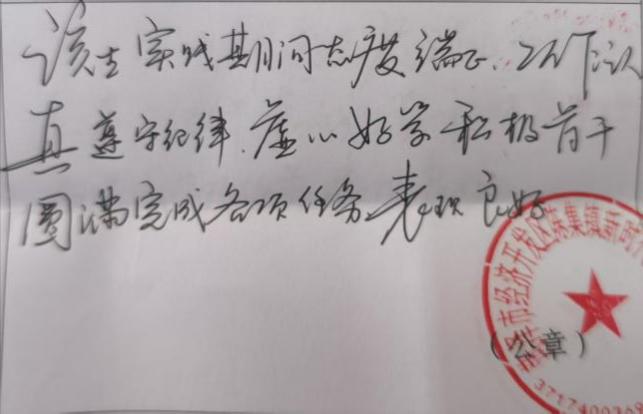 该生实践期间态度端正、工作认
真 遵守纪律、虚心好学 积极肯干
圆满完成各项任务 表现良好
市经济开发区蒋集镇新时
（公章）